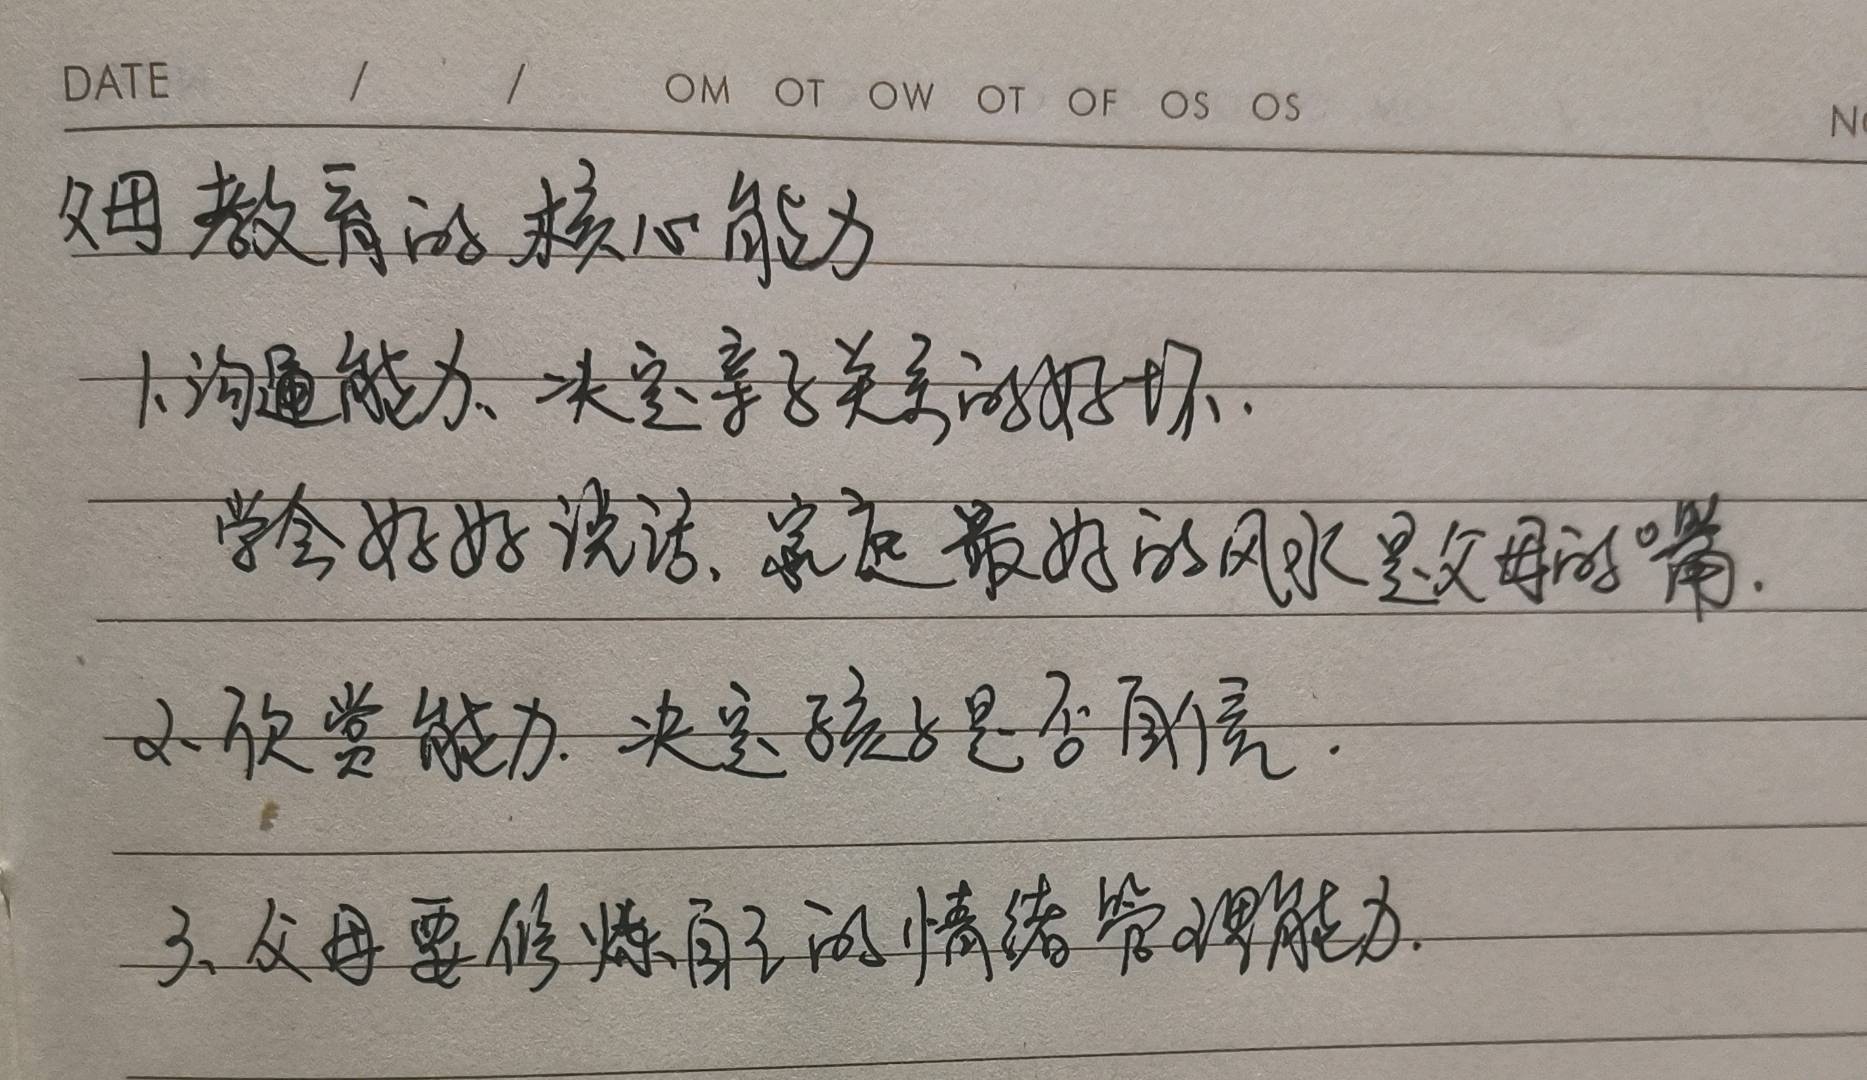 DATE / / OM OT OW OT OF OS OS
父母教育的核心能力
1、沟通能力、决定亲子关系的好坏、.
学会好好说话、家庭最好的风水是父母的嘴.
2、欣赏能力.决定孩子是否自信.
3、父母要修炼自己的情绪管理能力.